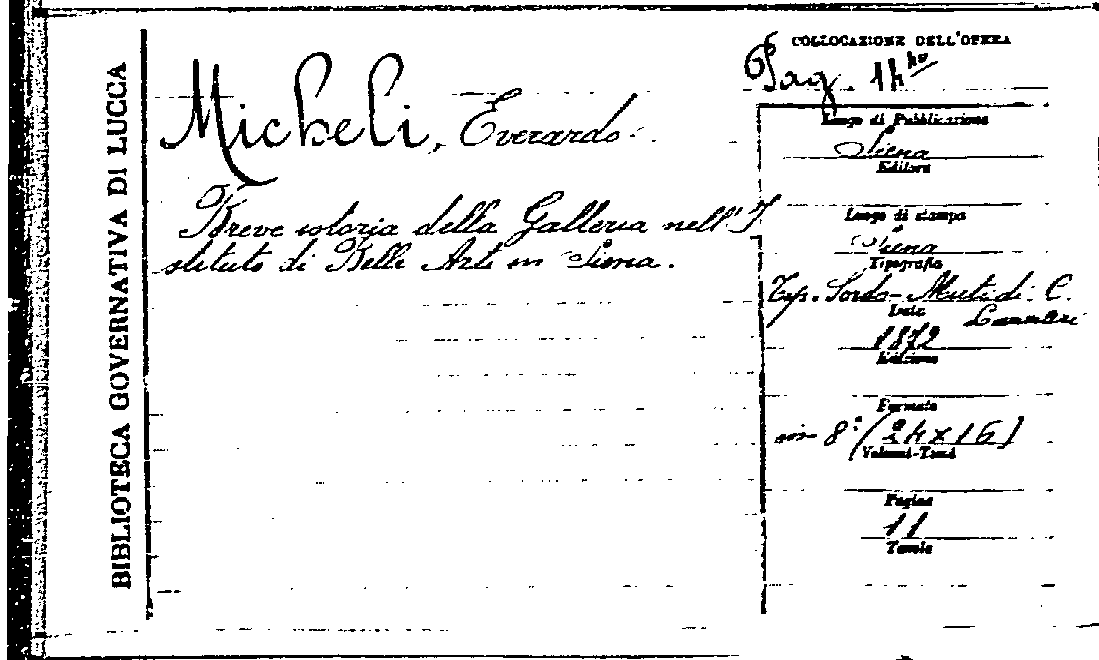 BIBLIOTECA GOVERNATIVA DI LUCCA
COLLOCAZIONE DELL'OPERA
Micheli, Everardo.
Breve istoria della Galleria nell'I
stituto di Belle Arti in Siena.
Luogo di Pubblicazione
Siena
Editore
Luogo di stampa
Siena
Tipografia
Tip. Sordo-Muti di C.
Data
1872
Edizione
Formato
in 8° (24x16)
Volumi-Tomi
Pagine
11
Tavole